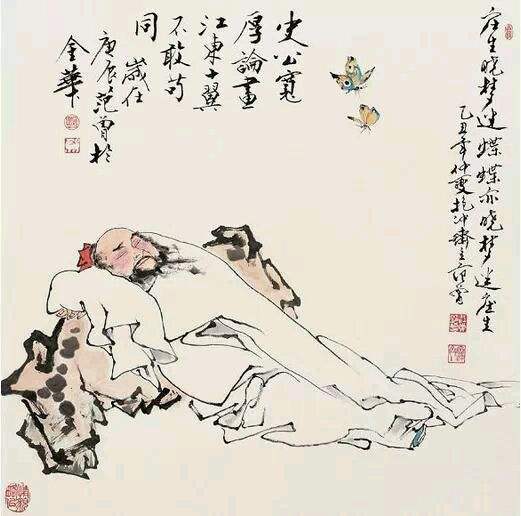 庄生晓梦迷蝶蝶亦晓梦迷庄生
乙丑年仲夏抱冲斋主范曾
史公寬
厚論畫
江東十翼
不敢苟
同歲在
庚辰范曾於
金華